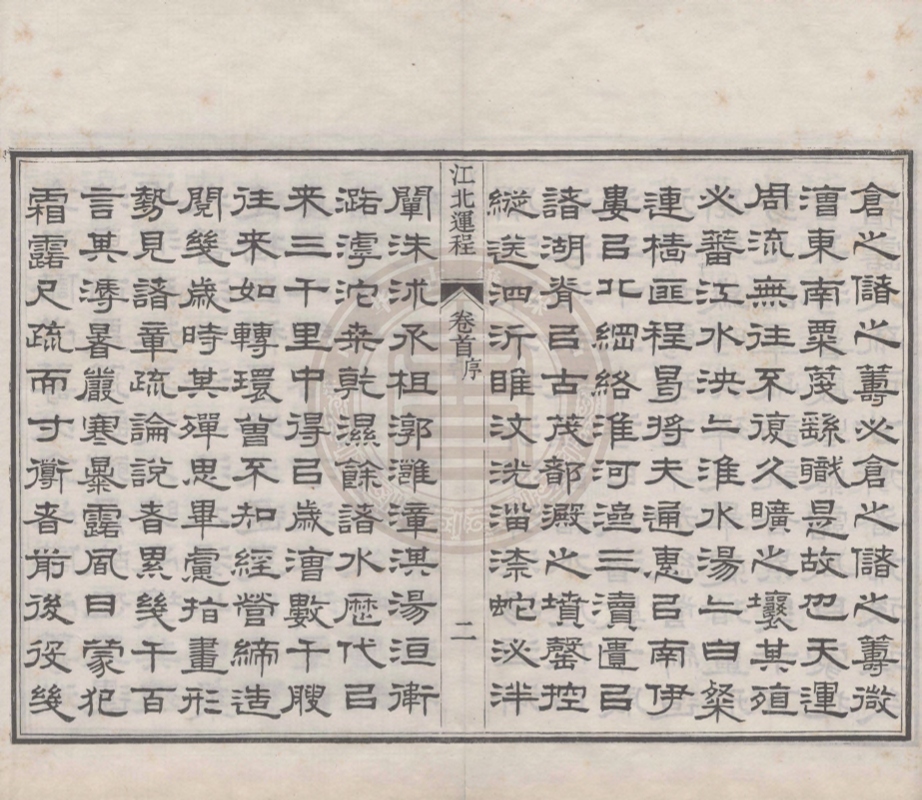 倉之儲之籌必倉之儲之籌微
漕東南粟蔑繇職是故也天運
周流無往不復久曠之壤其殖
必蕃江水泱二淮水湯二白粲
連檣匪程曷将夫通惠㠯南伊
婁㠯北綱絡淮河逾三瀆匯㠯
諸湖脊㠯古茂都澱之墳罄控
縱送泗沂睢汶洸淄漆蛇泌泮
江北運程 卷首 序 二
闡洙沭丞柤漷濰漳淇湯洹衛
潞滹沱桑乾濕餘諸水歷代㠯
来三千里中得㠯歲漕數千艘
往来如轉環曾不知經營締造
閱幾歲時其殫思畢慮指畫形
勢見諸章疏論說者累幾千百
言其溽暑嚴寒暴露風日蒙犯
霜露尺疏而寸衡者前後役幾